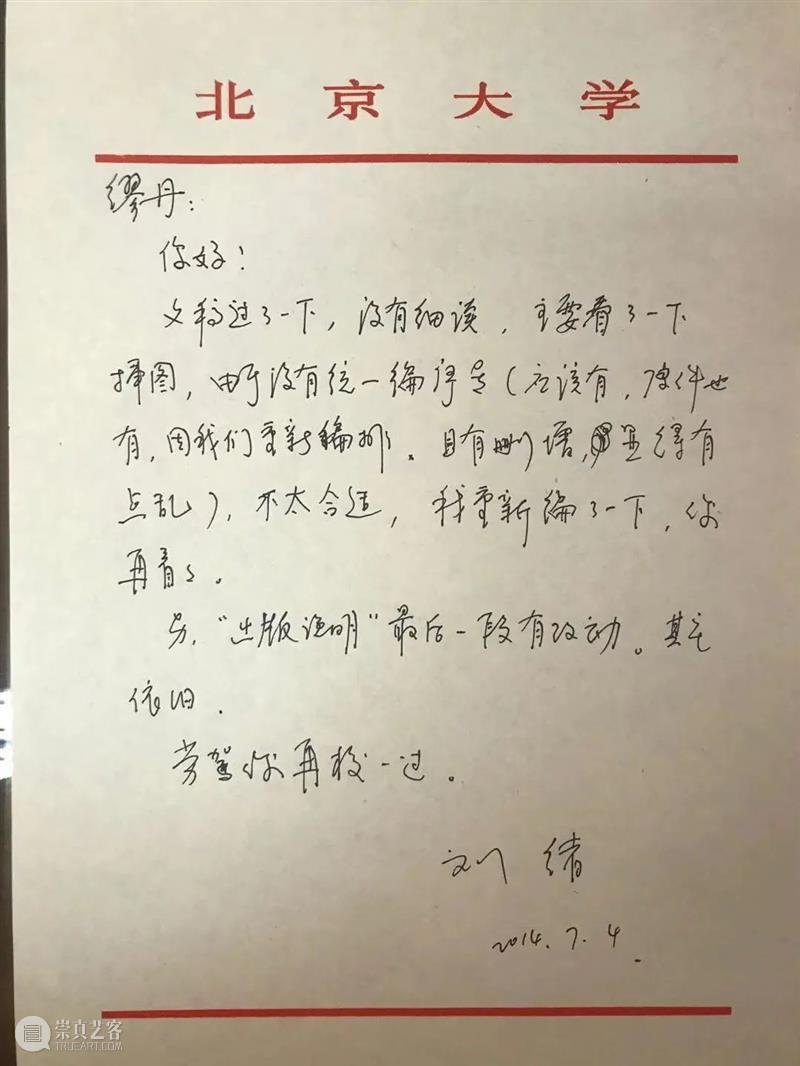 北京大学
缪丹：
你好！
文稿过了一下，没有细读，主要看了一下
插图，由于没有统一编序号（应该有，原件也
有，因我们重新编排。且有删增，显得有
点乱），不太合适，我重新编了一下，你
再看看。
另，“出版说明”最后一段有改动。其它
依旧．
劳驾你再校一过。
刘绪
2014.7.4.
崇真艺客
TRUEART.COM